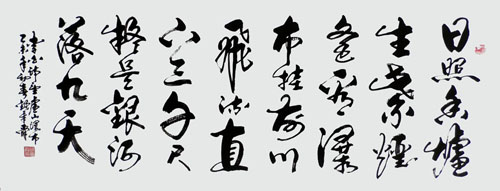 日照香爐
生紫煙
遥看瀑
布挂前川
飛流直
下三千尺
疑是銀河
落九天
李白詩望廬山瀑布
乙未年初春